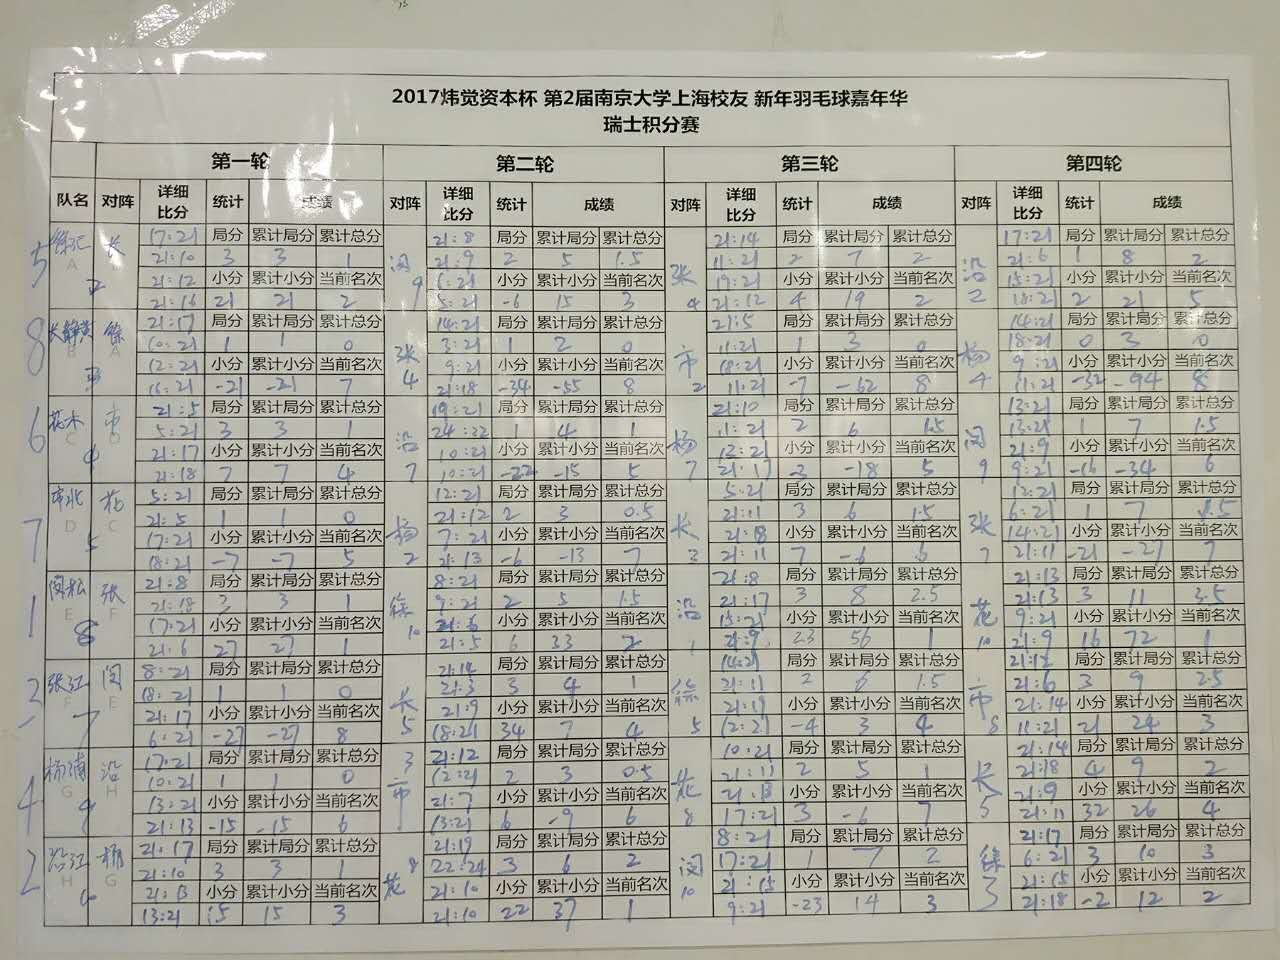 2017炜觉资本杯 第2届南京大学上海校友 新年羽毛球嘉年华
瑞士积分赛
第一轮 第二轮 第三轮 第四轮
队名 对阵 详细比分 统计 成绩 对阵 详细比分 统计 成绩 对阵 详细比分 统计 成绩 对阵 详细比分 统计 成绩
5 徐汇 A 长 17:21 局分 累计局分 累计总分 闵 21:8 局分 累计局分 累计总分 张 21:14 局分 累计局分 累计总分 沿 17:21 局分 累计局分 累计总分
21:10 3 3 1 21:9 2 5 1.5 11:21 2 7 2 21:6 1 8 2
21:12 小分 累计小分 当前名次 9 小分 累计小分 当前名次 4 小分 累计小分 当前名次 2 15:21 小分 累计小分 当前名次
21:16 21 21 2 5:21 -6 15 3 21:12 4 19 2 18:21 2 21 5
8 长静黄 B 徐 A 21:17 局分 累计局分 累计总分 张 14:21 局分 累计局分 累计总分 市 21:5 局分 累计局分 累计总分 杨 14:21 局分 累计局分 累计总分
10:21 1 1 0 3:21 1 2 0 11:21 1 3 0 18:21 0 3 0
12:21 小分 累计小分 当前名次 4 9:21 小分 累计小分 当前名次 2 小分 累计小分 当前名次 4 9:21 小分 累计小分 当前名次
16:21 -21 -21 7 21:18 -34 -55 8 11:21 -7 -62 8 11:21 -32 -94 8
6 花木 C 市 D 21:5 局分 累计局分 累计总分 沿 19:21 局分 累计局分 累计总分 杨 21:10 局分 累计局分 累计总分 闵 13:21 局分 累计局分 累计总分
5:21 3 3 1 24:22 1 4 1 11:21 2 6 1.5 13:21 1 7 1.5
4 21:17 小分 累计小分 当前名次 10:21 小分 累计小分 当前名次 小分 累计小分 当前名次 21:9 小分 累计小分 当前名次
21:18 7 7 4 7 10:21 -22 -15 5 7 21:17 -3 -18 5 9 9:21 -16 -34 6
7 市北 D 花 C 5:21 局分 累计局分 累计总分 杨 12:21 局分 累计局分 累计总分 长 5:21 局分 累计局分 累计总分 张 12:21 局分 累计局分 累计总分
21:5 1 1 0 21:12 2 3 0.5 21:11 3 6 1.5 6:21 1 7 1.5
5 17:21 小分 累计小分 当前名次 7:21 小分 累计小分 当前名次 21:18 小分 累计小分 当前名次 14:21 小分 累计小分 当前名次
18:21 -7 -7 5 2 21:13 -6 -13 7 3 21:11 7 -6 6 7 21:11 -21 -27 7
1 闵松 E 张 F 21:8 局分 累计局分 累计总分 徐 8:21 局分 累计局分 累计总分 沿 21:8 局分 累计局分 累计总分 花 21:13 局分 累计局分 累计总分
21:18 3 3 1 9:21 2 5 1.5 21:17 3 8 2.5 21:13 3 11 3.5
8 17:21 小分 累计小分 当前名次 10 21:6 小分 累计小分 当前名次 15:21 小分 累计小分 当前名次 9:21 小分 累计小分 当前名次
21:6 27 27 1 21:5 6 33 2 1 21:9 23 56 1 10 21:9 16 72 1
3 张江 F 闵 E 8:21 局分 累计局分 累计总分 长 21:14 局分 累计局分 累计总分 徐 14:21 局分 累计局分 累计总分 市 21:12 局分 累计局分 累计总分
18:21 1 1 0 21:3 3 4 1 21:11 2 6 1.5 21:6 3 9 2.5
7 21:17 小分 累计小分 当前名次 5 21:9 小分 累计小分 当前名次 小分 累计小分 当前名次 21:14 小分 累计小分 当前名次
6:21 -27 -27 8 18:21 34 7 4 5 12:21 -4 3 4 8 11:21 21 24 3
4 杨浦 G 沿 H 17:21 局分 累计局分 累计总分 3 市 21:12 局分 累计局分 累计总分 花 10:21 局分 累计局分 累计总分 长 21:14 局分 累计局分 累计总分
10:21 1 1 0 12:21 2 3 0.5 21:11 2 5 1 21:18 4 9 2
9 13:21 小分 累计小分 当前名次 21:7 小分 累计小分 当前名次 小分 累计小分 当前名次 21:9 小分 累计小分 当前名次
21:13 -15 -15 6 13:21 6 -9 6 8 17:21 3 -6 7 5 21:11 32 26 4
2 沿江 H 杨 G 21:17 局分 累计局分 累计总分 8 花 21:19 局分 累计局分 累计总分 闵 8:21 局分 累计局分 累计总分 徐 21:17 局分 累计局分 累计总分
21:10 3 3 1 22:24 3 6 2 17:21 1 7 2 6:21 3 10 3
21:13 小分 累计小分 当前名次 21:10 小分 累计小分 当前名次 21:15 小分 累计小分 当前名次 21:15 小分 累计小分 当前名次
13:21 15 15 3 21:10 22 37 1 10 9:21 -23 14 3 3 21:18 -2 12 2